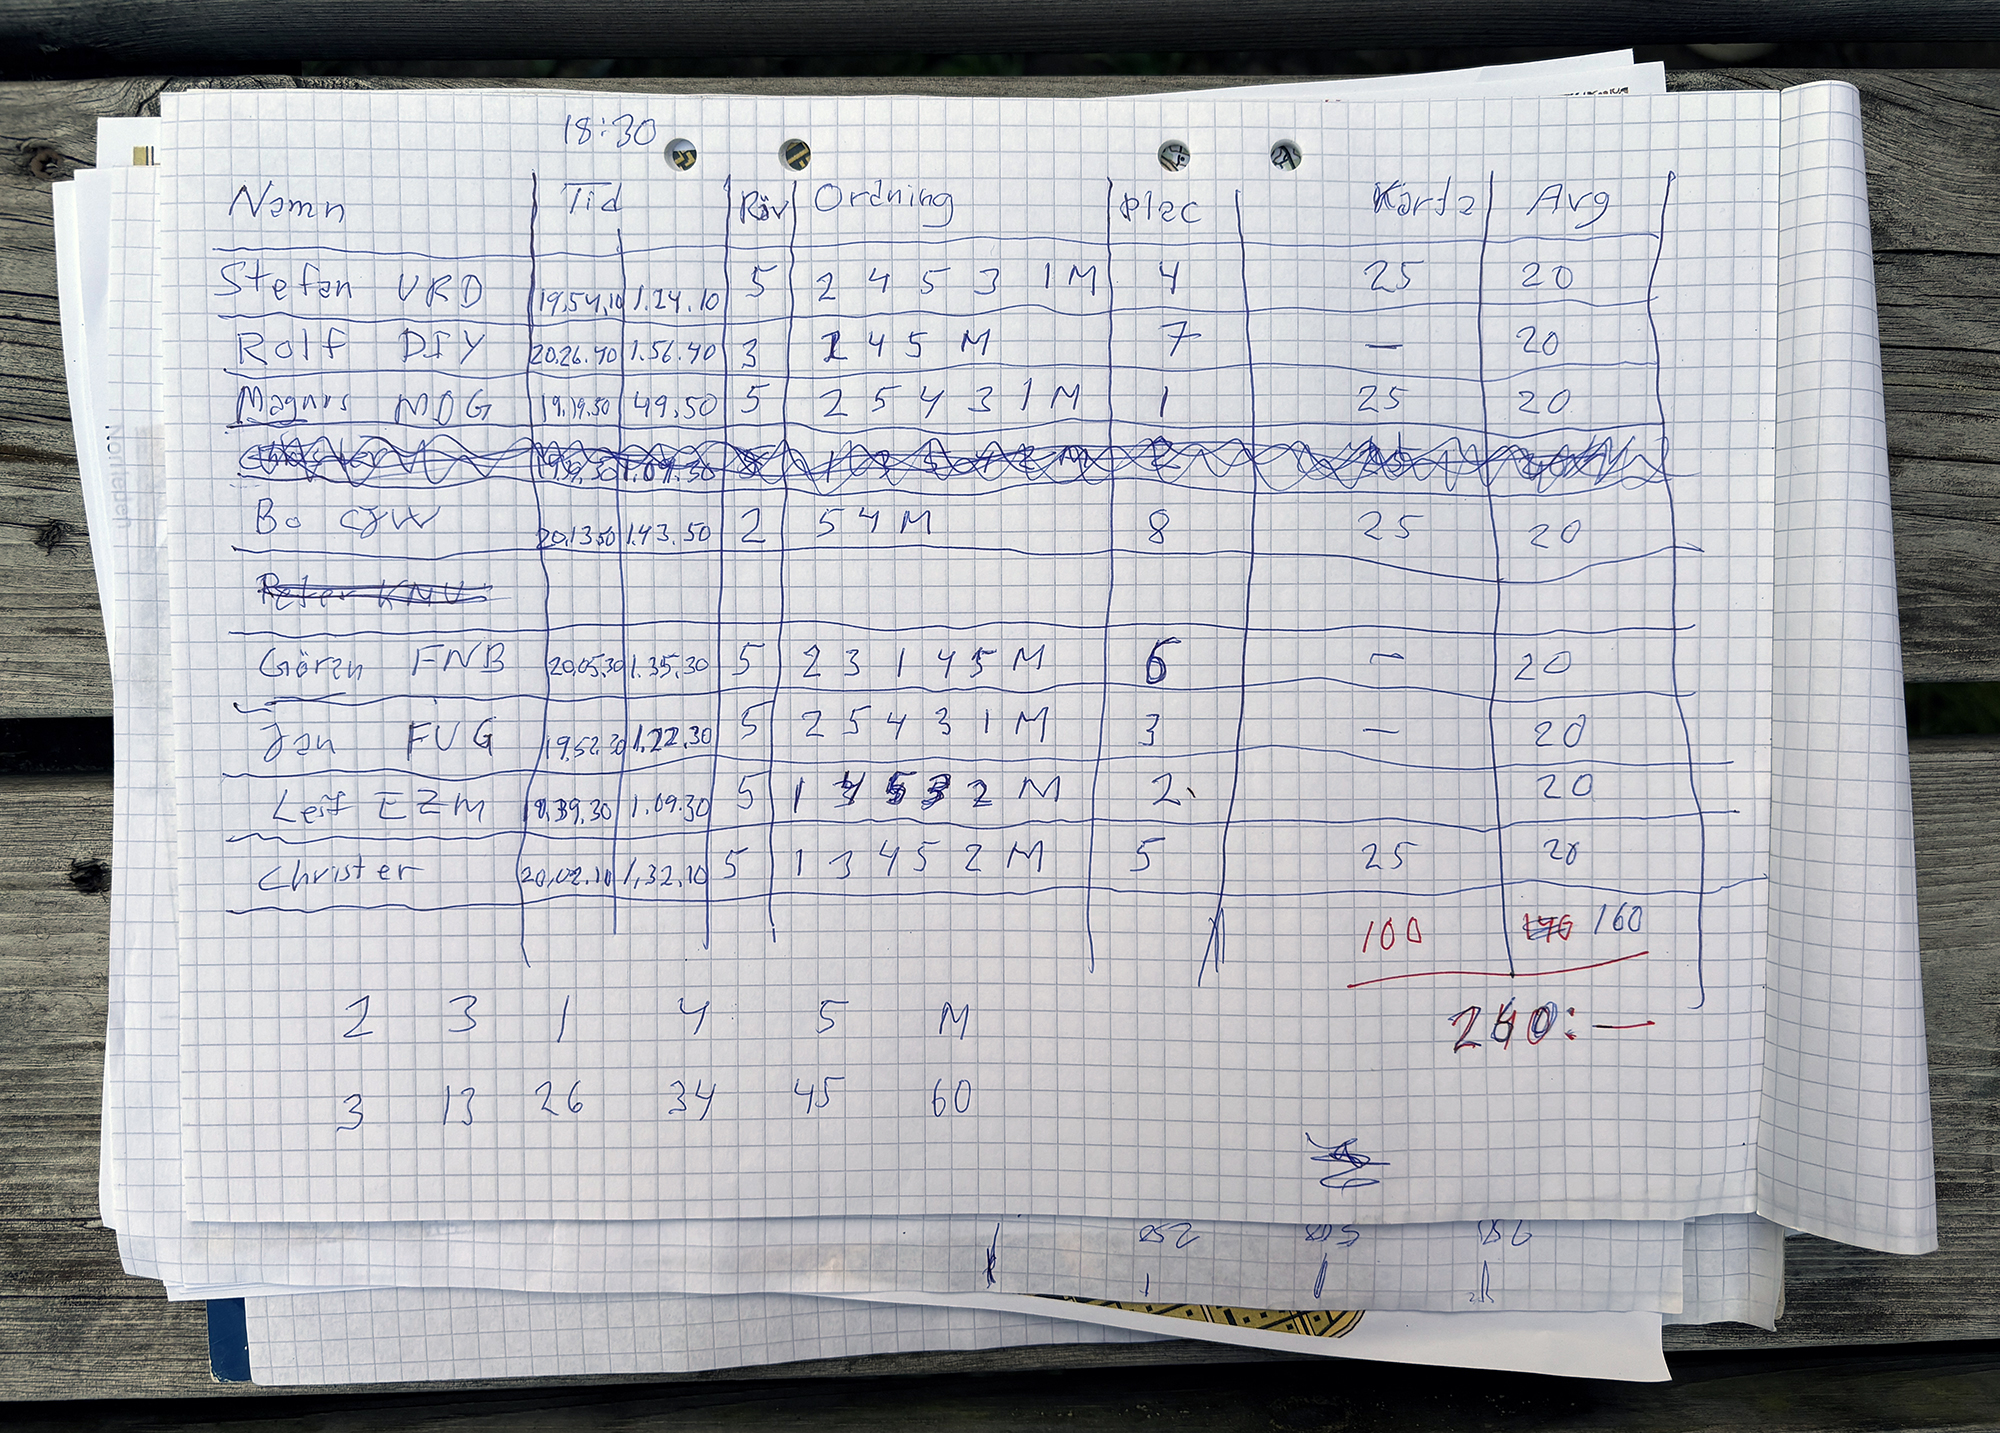 18:30
Namn Tid Räv Ordning Plac Karta Avg
Stefan VRD 19,54,10 1.24.10 5 2 4 5 3 1 M 4 25 20
Rolf DIY 20.26.40 1.56.40 3 2 4 5 M 7 — 20
Magnus MOG 19.19.50 49,50 5 2 5 4 3 1 M 1 25 20
19,39,30 1.09.30
Bo CJW 20,13.50 1.43.50 2 5 4 M 8 25 20
Peter KMU
Göran FNB 20,05,30 1.35.30 5 2 3 1 4 5 M 6 — 20
Jan FUG 19,52.30 1.22.30 5 2 5 4 3 1 M 3 — 20
Leif EZM 19,39,30 1.09.30 5 1 4 5 3 2 M 2 20
Christer 20,02.10 1,32.10 5 1 3 4 5 2 M 5 25 20
100 160
260:—
2 3 1 4 5 M
3 13 26 34 45 60
Norrleden